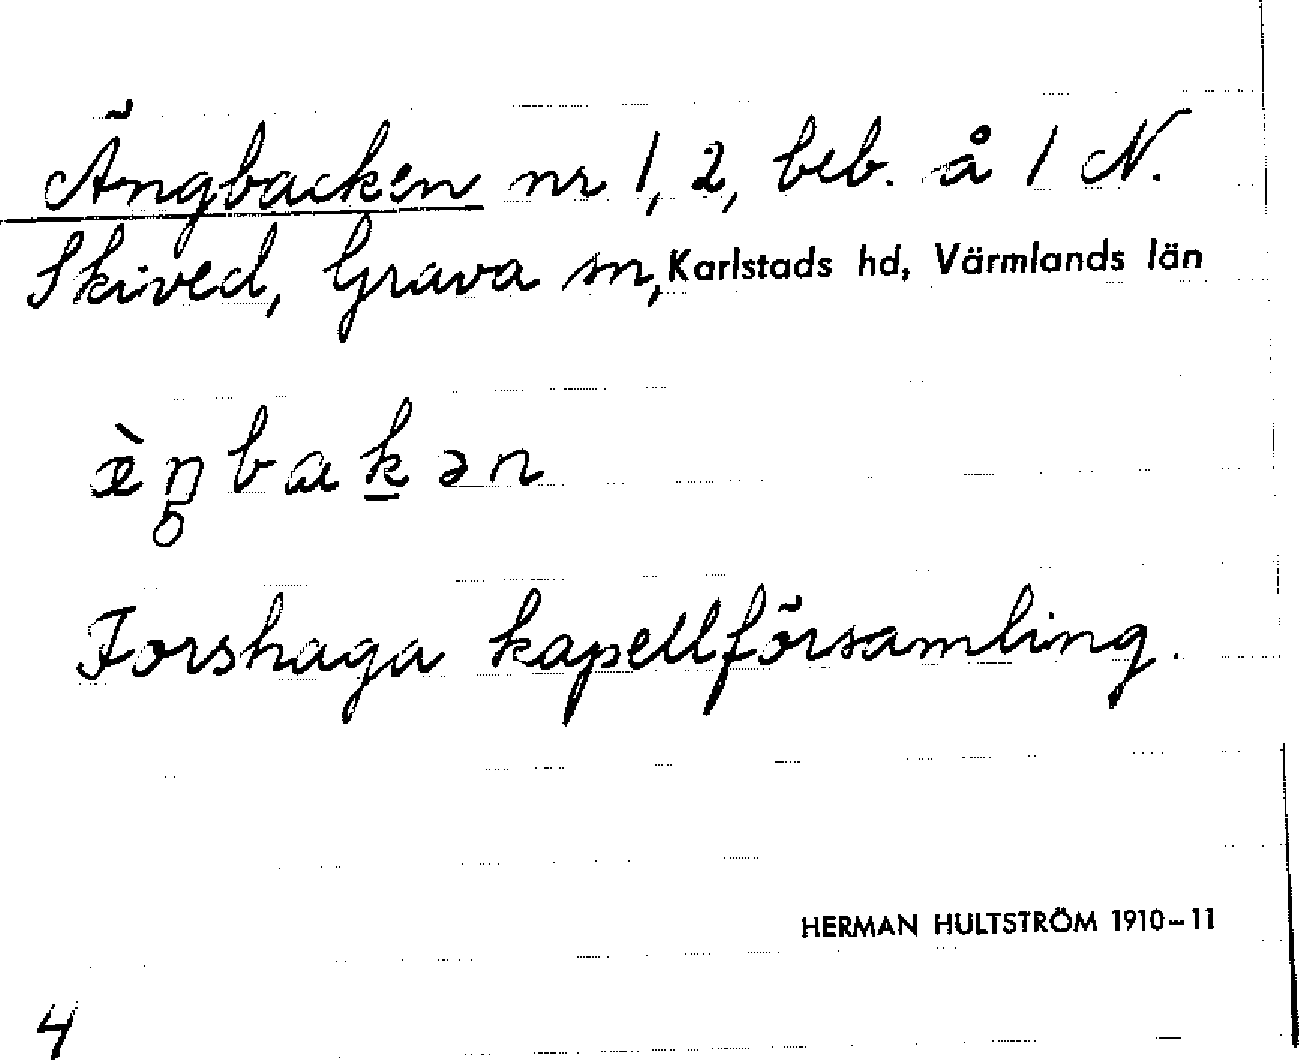 Ängbacken nr 1, 2, beb. å 1 N.
Skived, Grava sn, Karlstads hd, Värmlands län
æ̀ŋbak̠ən
Forshaga kapellförsamling.
HERMAN HULTSTRÖM 1910-11
4